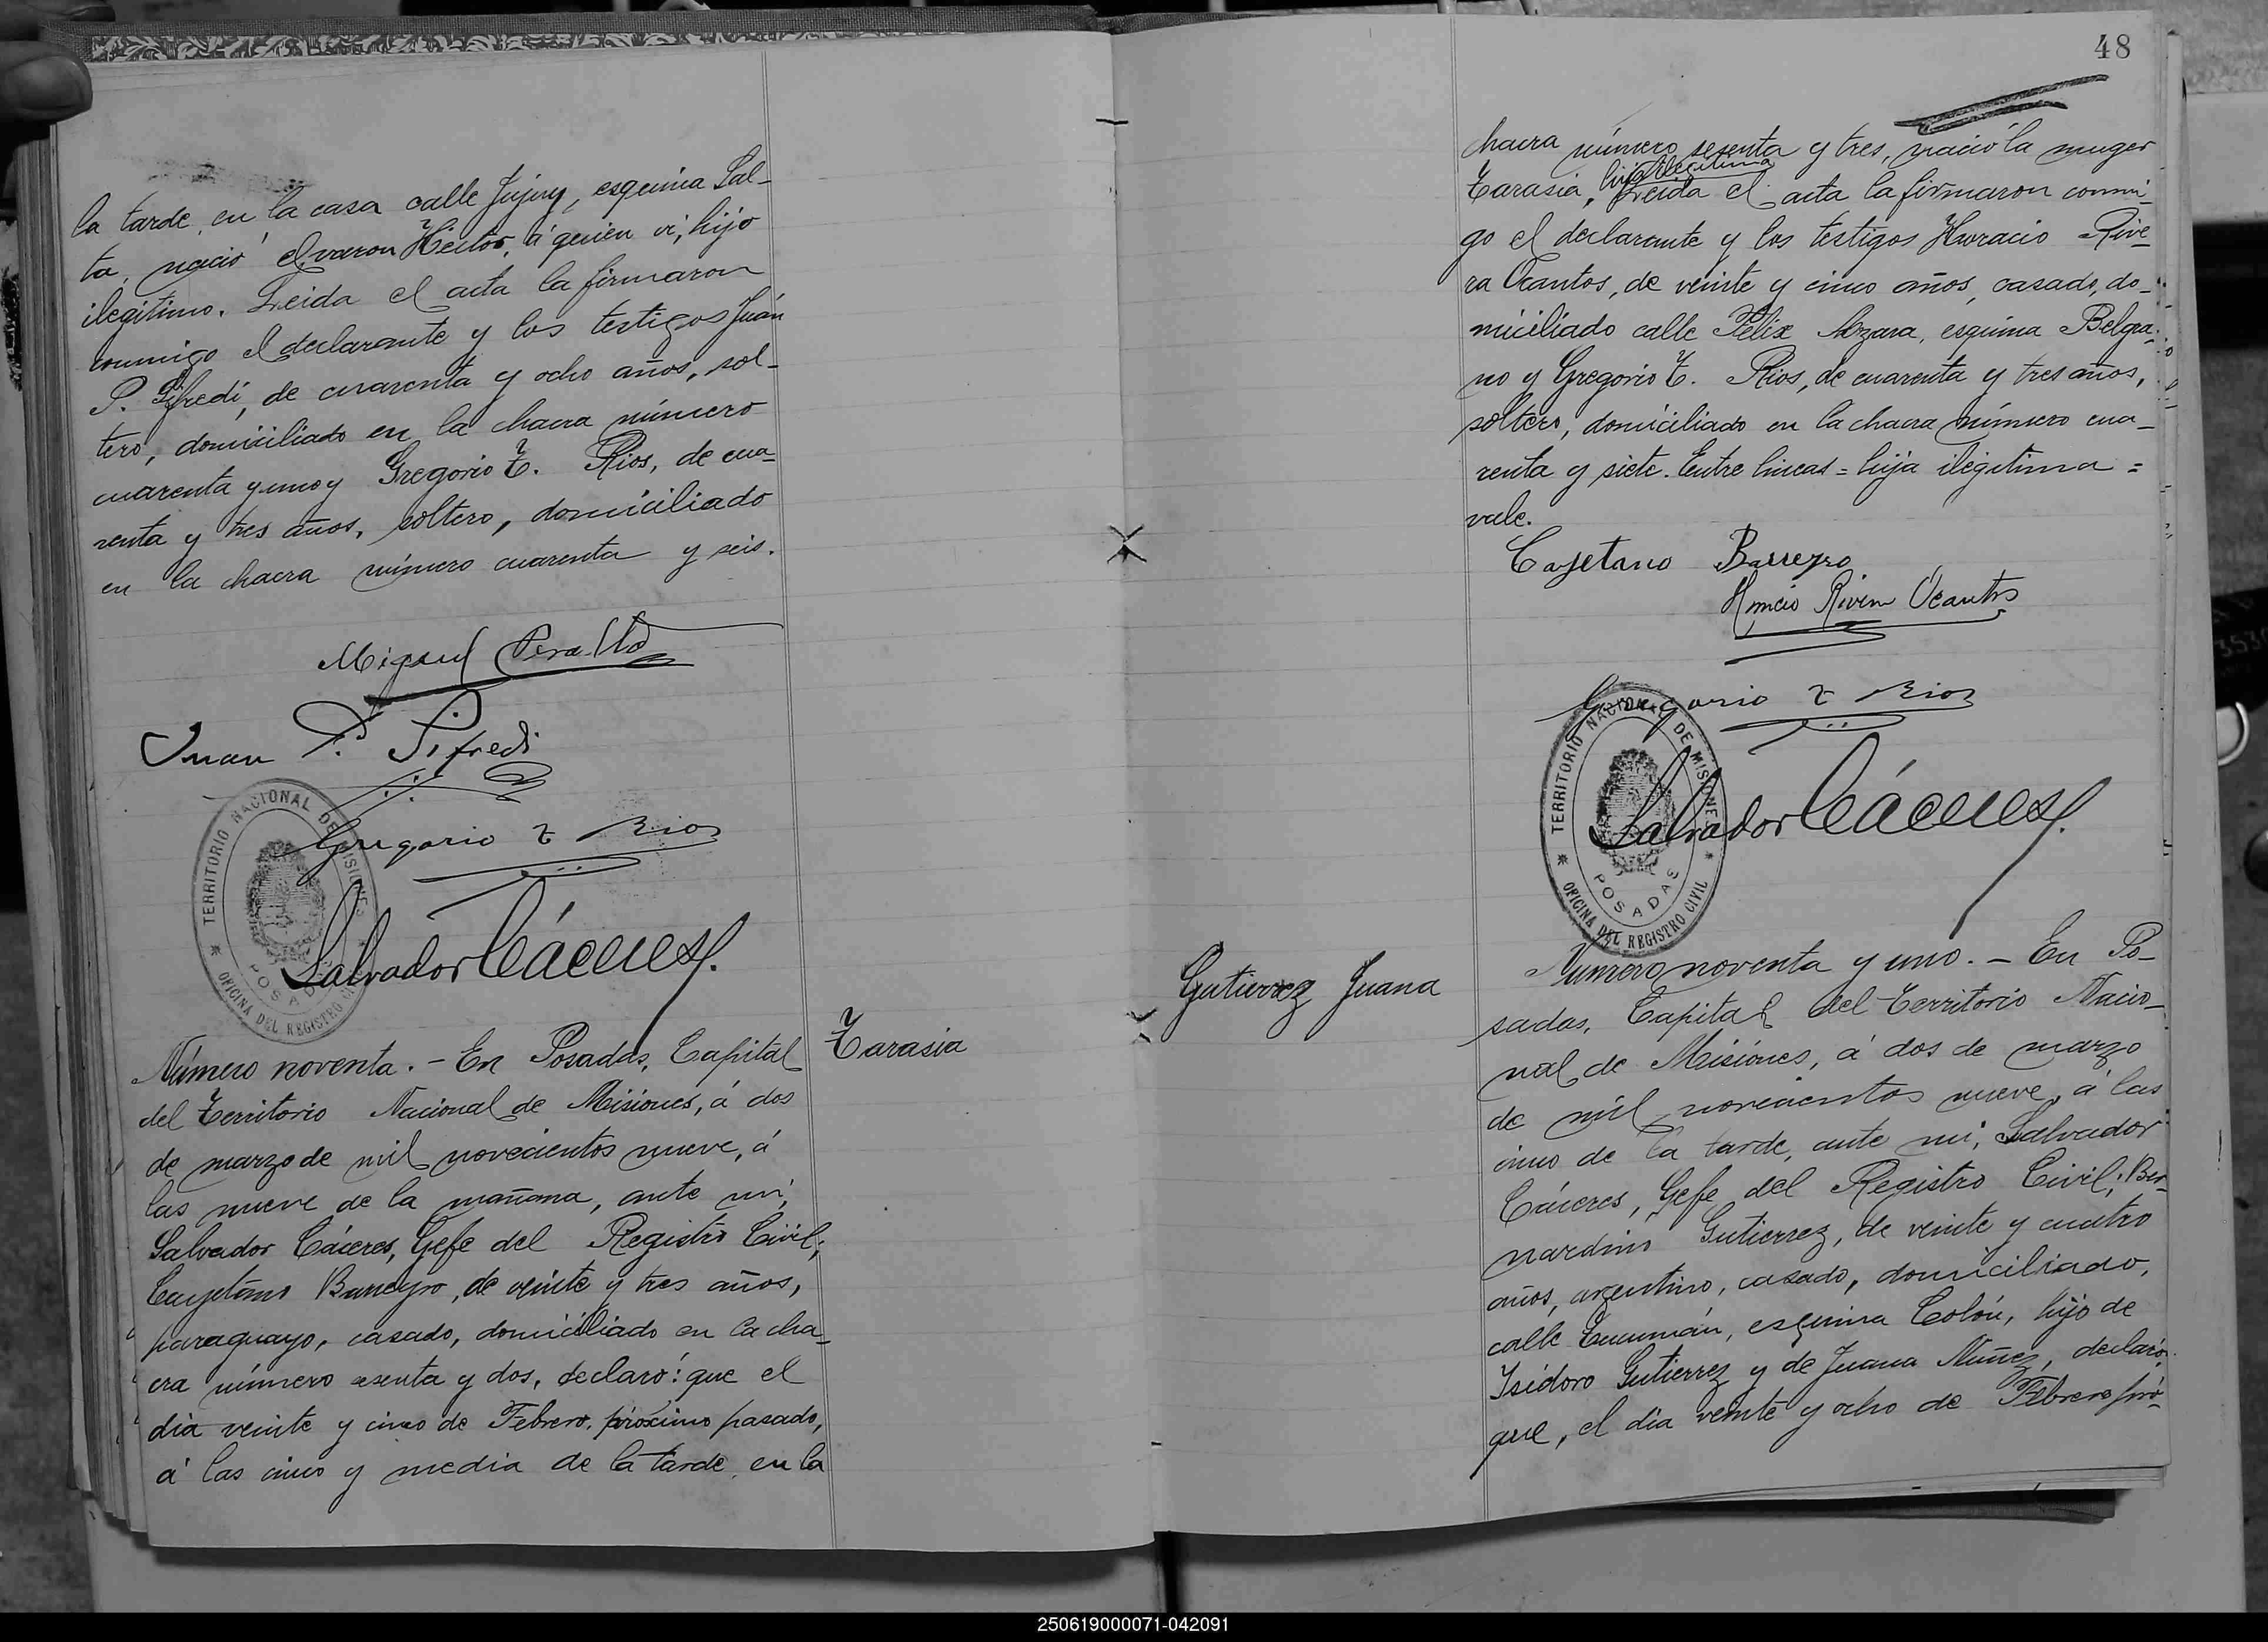 la tarde, en la casa calle Jujuy, esquina Sal-
ta, nació el varon Héctor, á quien vi, hijo
ilegítimo. Leida el acta la firmaron
conmigo el declarante y los testigos Juán
P. Sifredi, de cuarenta y ocho años, sol-
tero, domiciliado en la chacra número
cuarenta y uno y Gregorio T. Rios, de cua-
renta y tres años, soltero, domiciliado
en la chacra número cuarenta y seis.
Miguel Peralta
Juan P. Sifredi
Gregorio T Rios
Salvador Cáceres
TERRITORIO NACIONAL DE MISIONES
POSADAS
OFICINA DEL REGISTRO CIVIL
Número noventa. - En Posadas, Capital
del Territorio Nacional de Misiones, á dos
de marzo de mil novecientos nueve, á
las nueve de la mañana, ante mí,
Salvador Cáceres, Gefe del Registro Civil;
Cayetano Barreyro, de veinte y tres años,
paraguayo, casado, domiciliado en la cha-
cra número sesenta y dos, declaró: que el
día veinte y cinco de Febrero, próximo pasado,
á las cinco y media de la tarde, en la
Tarasia
48
chacra número sesenta y tres, nació la muger
hija ilegitima
Tarasia, Leida el acta la firmaron conmi-
go el declarante y los testigos Horacio Rive-
ra Ocantos, de veinte y cinco años, casado, do-
miciliado calle Félix Azara, esquina Belgra-
no y Gregorio T. Rios, de cuarenta y tres años,
soltero, domiciliado en la chacra número cua-
renta y siete. Entre lineas = hija ilegitima =
vale.
Cayetano Barreyro
Horacio Rivera Ocantos
Gregorio T Rios
Salvador Cáceres
TERRITORIO NACIONAL DE MISIONES
POSADAS
OFICINA DEL REGISTRO CIVIL
Gutierrez Juana
Número noventa y uno. - En Po-
sadas, Capital del Territorio Nacio-
nal de Misiones, á dos de marzo
de mil novecientos nueve, á las
cinco de la tarde, ante mí, Salvador
Cáceres, Gefe del Registro Civil; Ber-
nardino Gutierrez, de veinte y cuatro
años, argentino, casado, domiciliado,
calle Tucumán, esquina Colón, hijo de
Isidoro Gutierrez y de Juana Nuñez, declaró:
que, el día veinte y ocho de Febrero pró-
250619000071-042091